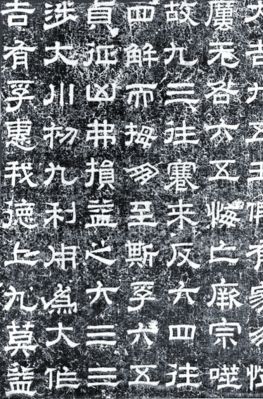 大吉九五王假有家
厲无咎六五悔亡厥宗噬
故九三往蹇来反六四往
四解而拇朋至斯孚六五
貞征凶弗損益之六三三
涉大川初九利用為大作
吉有孚惠我德上九莫益